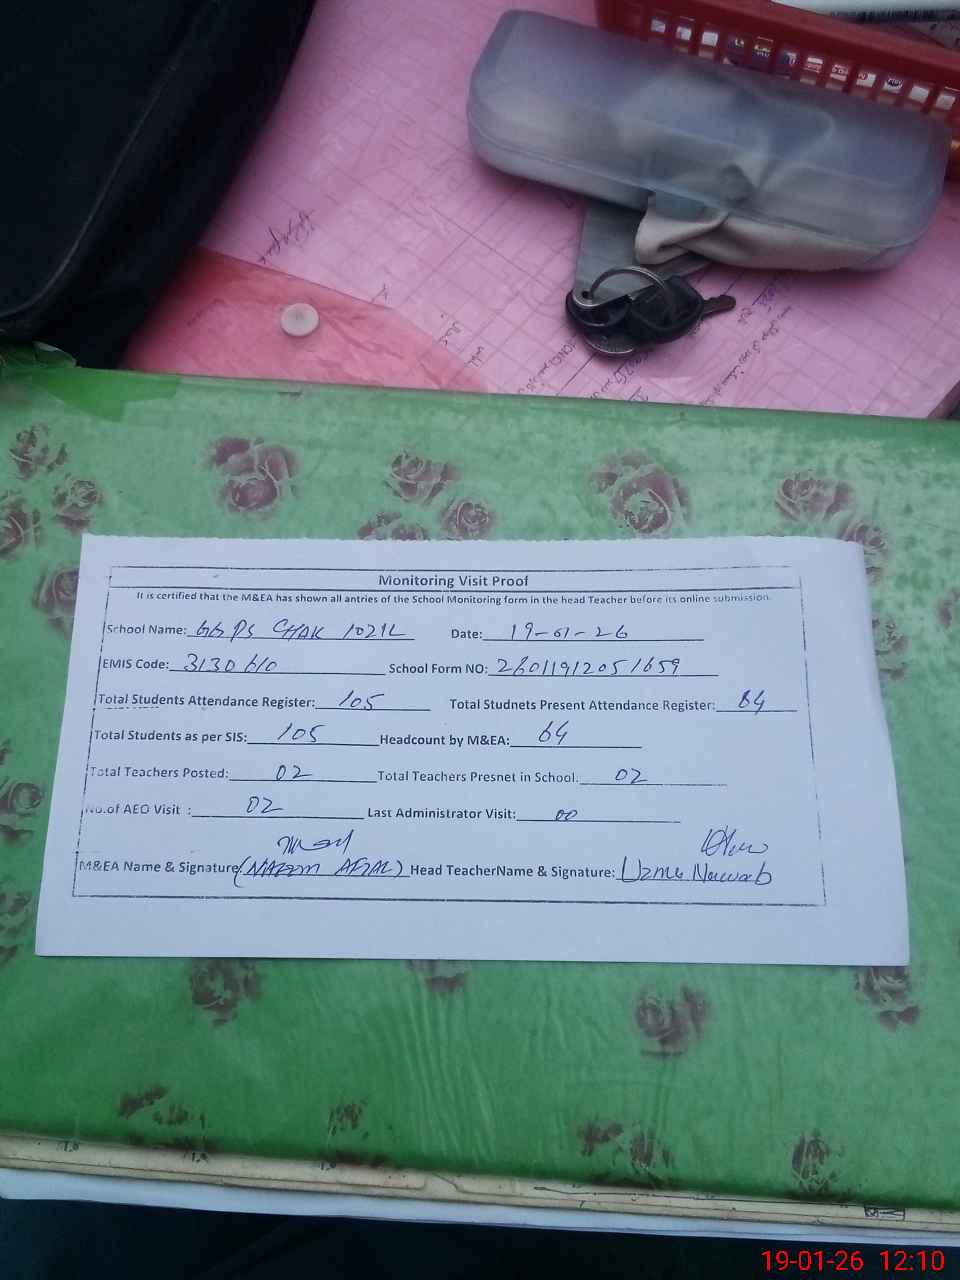 Monitoring Visit Proof
It is certified that the M&EA has shown all antries of the School Monitoring form in the head Teacher before its online submission.
School Name: GG PS CHAK 1021L Date: 19-01-26
EMIS Code: 3130610 School Form NO: 26011912051659
Total Students Attendance Register: 105 Total Studnets Present Attendance Register: 64
Total Students as per SIS: 105 Headcount by M&EA: 64
Total Teachers Posted: 02 Total Teachers Presnet in School. 02
No.of AEO Visit : 02 Last Administrator Visit: 00
M&EA Name & Signature (NAEEM AFZAL) Head TeacherName & Signature: Uzma Nawab
19-01-26 12:10